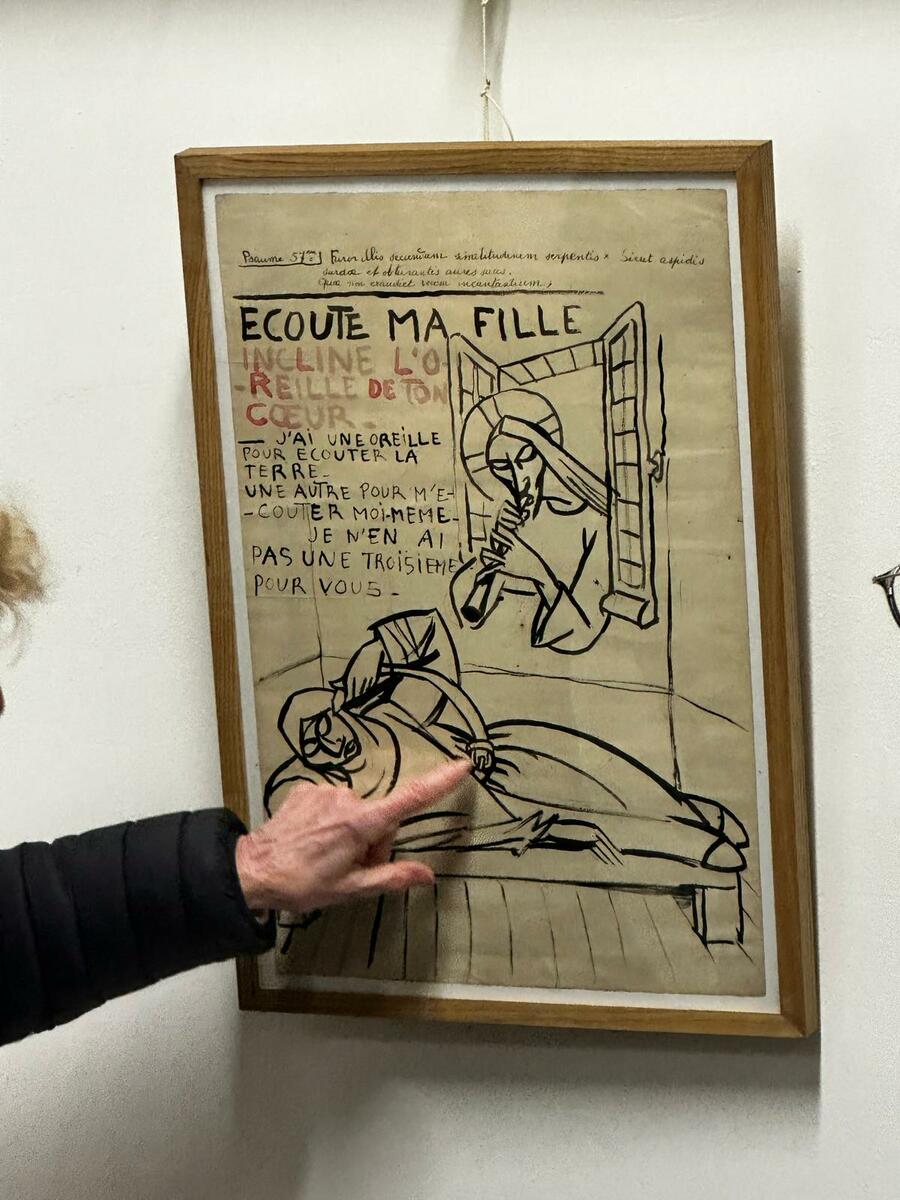 Psaume 57me Furor illis secundum similitudinem serpentis × Sicut aspidis
surdæ et obturantis aures suas.
Quæ non exaudiet vocem incantantium,
ECOUTE MA FILLE
INCLINE L'O-
-REILLE DE TON
CŒUR -
— J'AI UNE OREILLE
POUR ECOUTER LA
TERRE -
UNE AUTRE POUR M'E-
-COUTER MOI-MEME -
JE N'EN AI
PAS UNE TROISIEME
POUR VOUS -